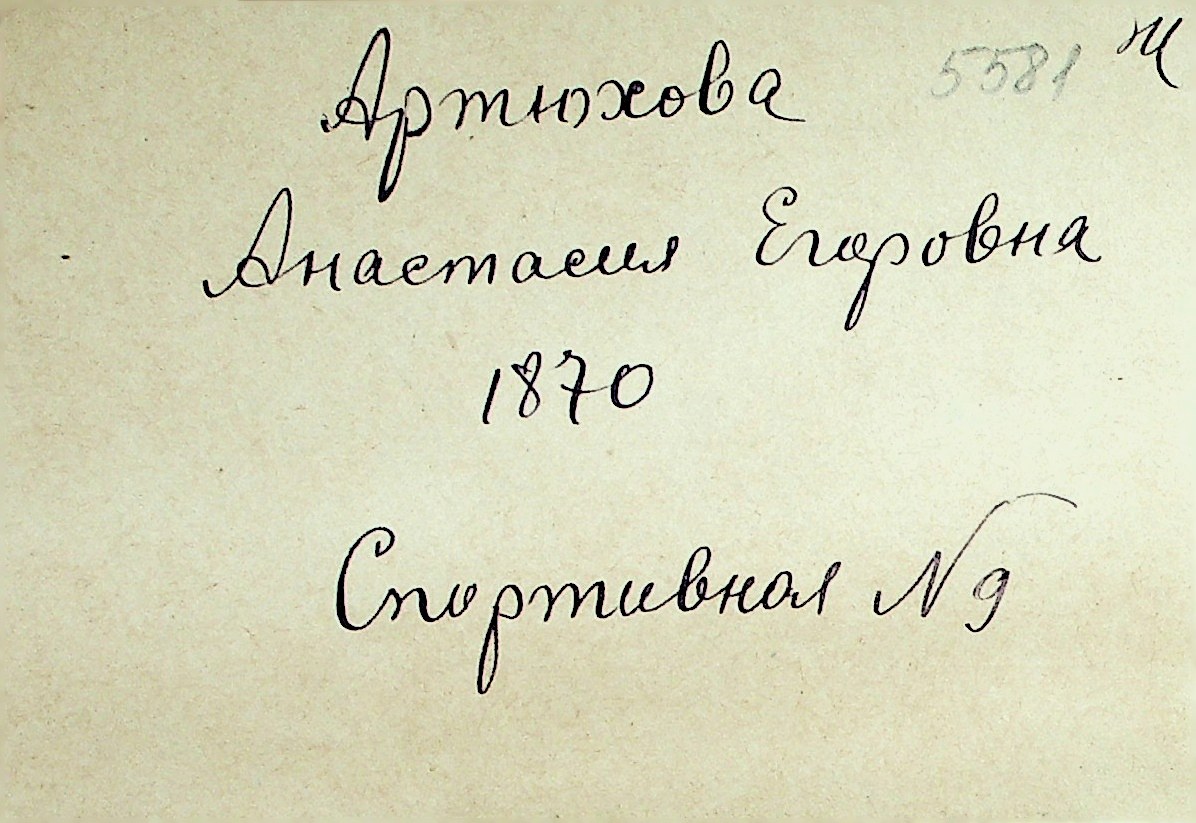 5581 Ж
Артюхова
Анастасия Егоровна
1870
Спортивная N 9